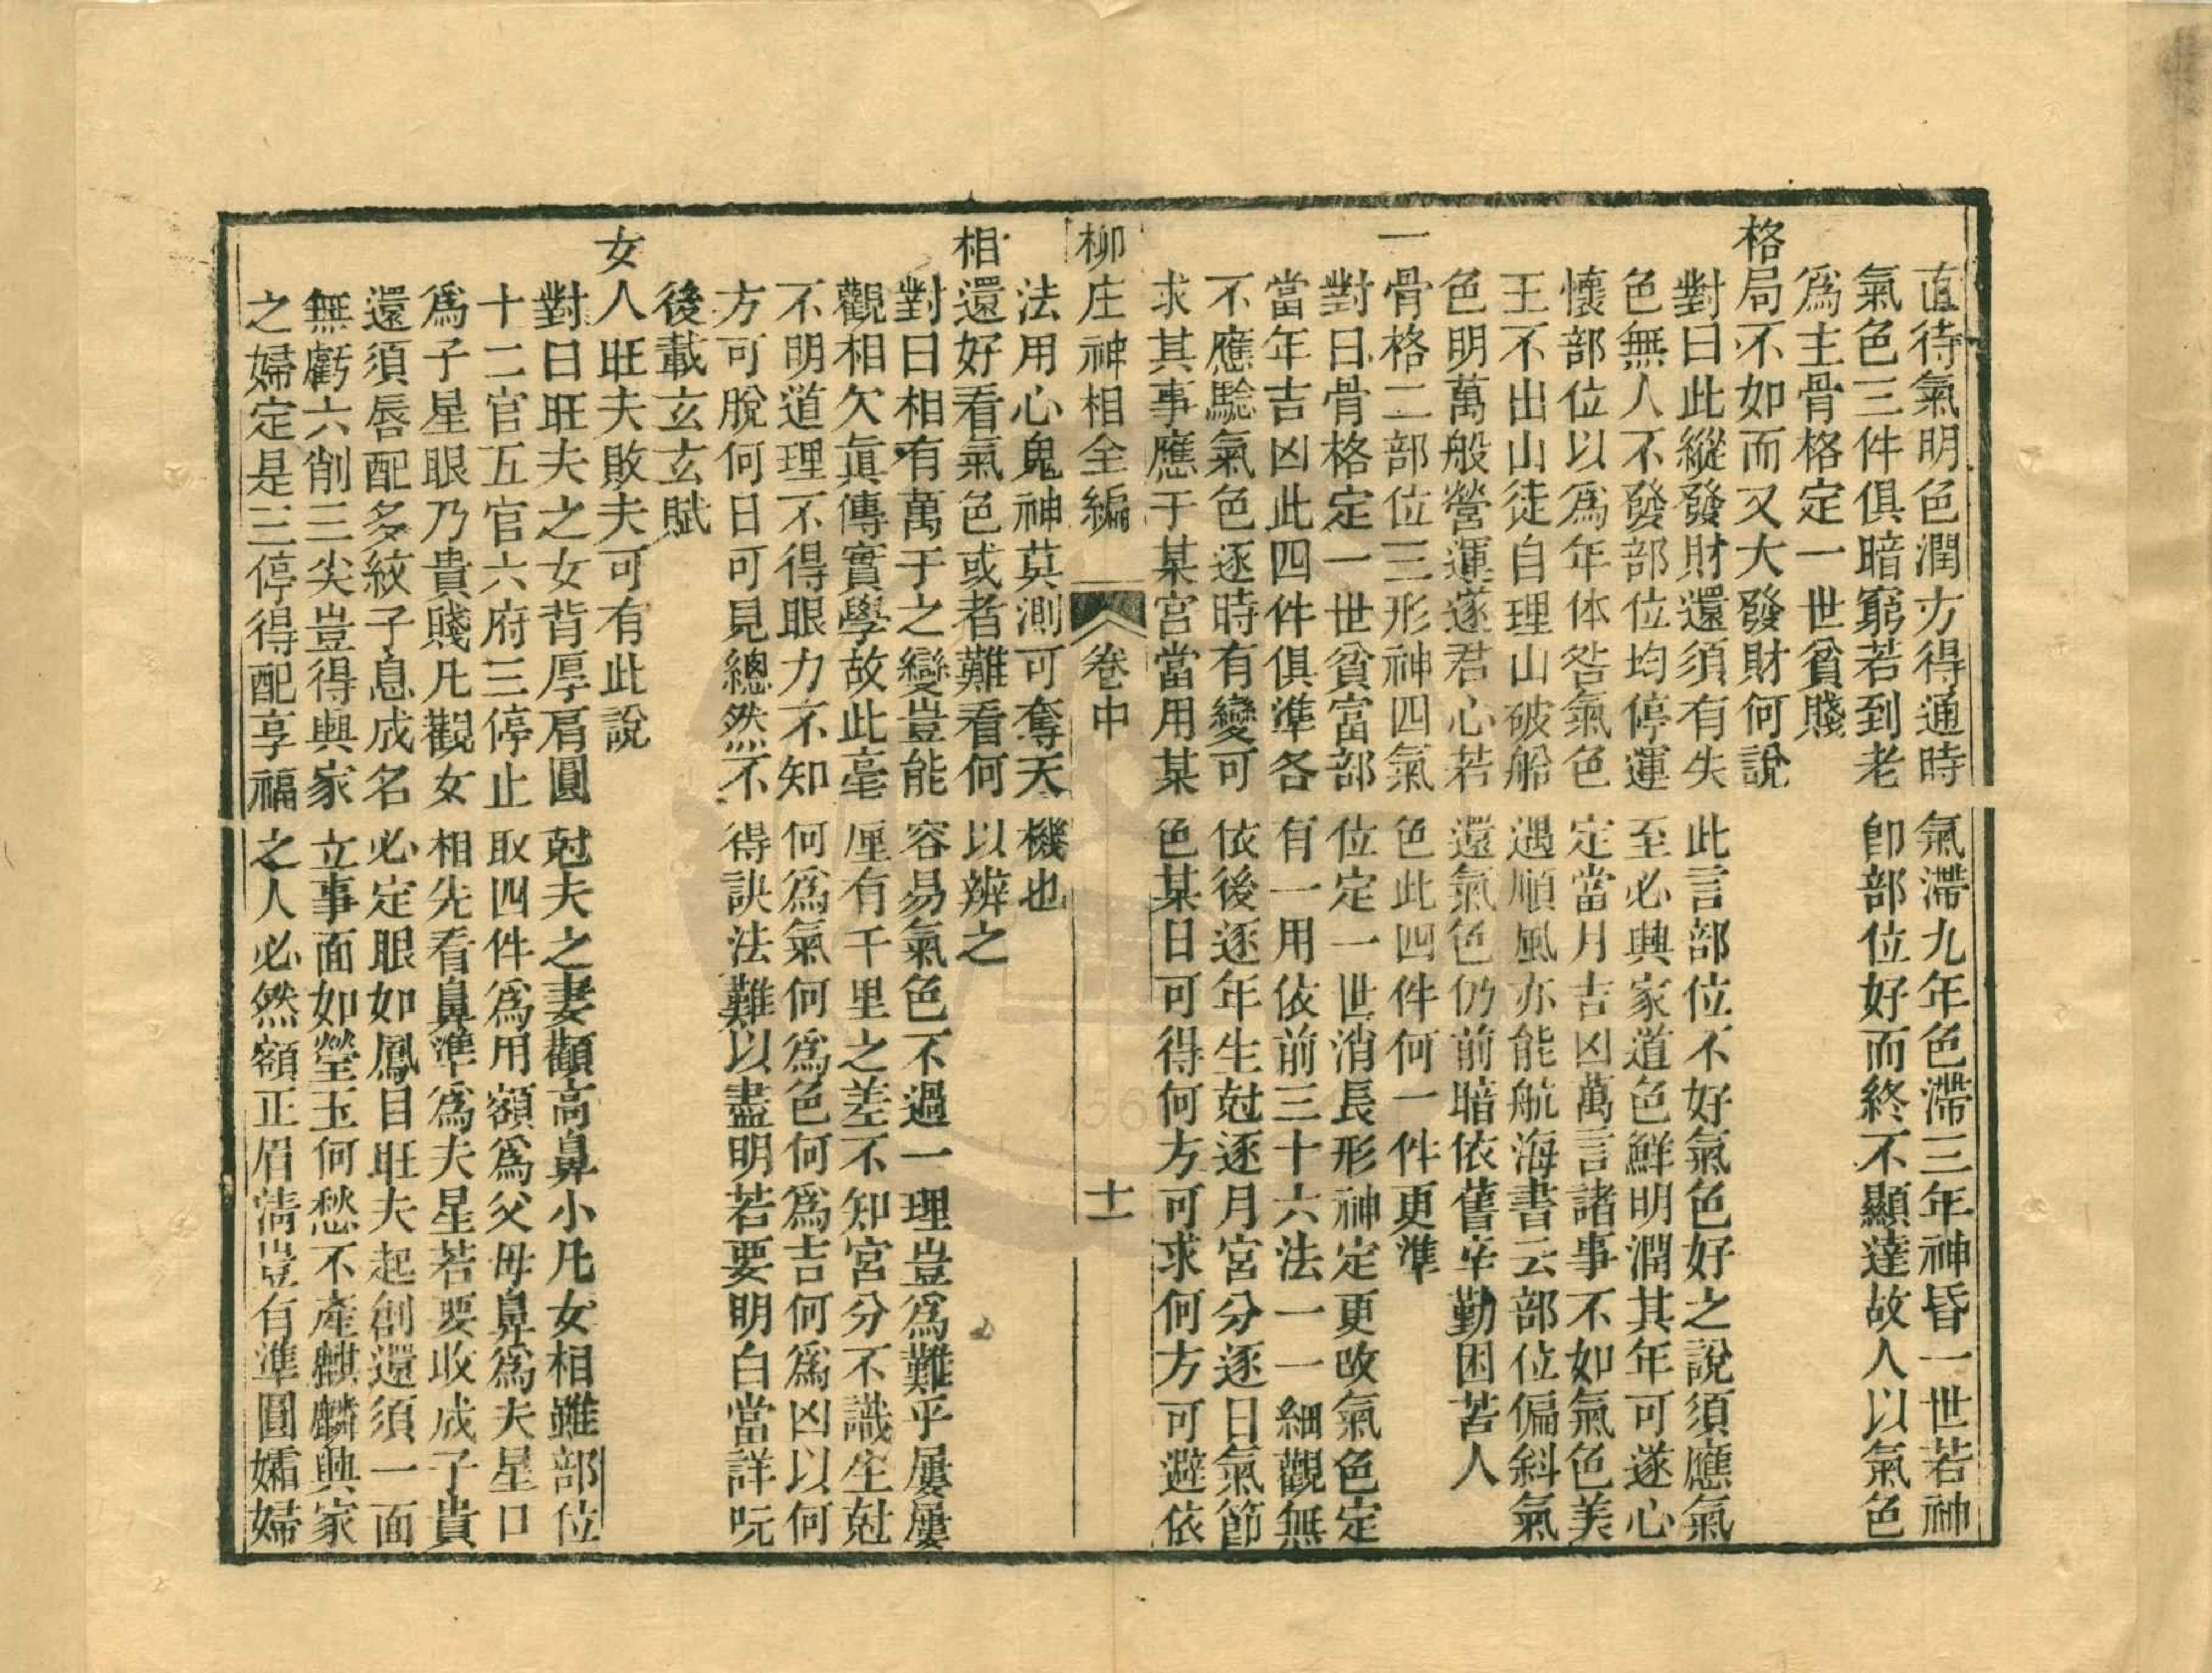 直待氣明色潤方得通時氣滯九年色滯三年神昏一世若神
氣色三件俱暗窮若到老卽部位好而終不顯達故人以氣色
爲主骨格定一世貧賤
格局不如而又大發財何說
對曰此縱發財還須有失此言部位不好氣色好之說須應氣
色無人不發部位均停運至必興家道色鮮明潤其年可遂心
懷部位以爲年体咎氣色定當月吉凶萬言諸事不如氣色美
王不出山徒自理山破船遇順風亦能航海書云部位偏斜氣
色明萬般營運遂君心若還氣色仍前暗依舊辛勤困苦人
一骨格二部位三形神四氣色此四件何一件更準
對曰骨格定一世貧富部位定一世消長形神定更改氣色定
當年吉凶此四件俱準各有一用依前三十六法一一細觀無
不應驗氣色逐時有變可依後逐年生尅逐月宮分逐日氣節
求其事應于某宮當用某色某日可得何方可求何方可避依
柳庄神相全編 卷中 十一
法用心鬼神莫測可奪天機也
相還好看氣色或者難看何以辨之
對曰相有萬于之變豈能容易氣色不過一理豈爲難乎屢屢
觀相欠眞傳實學故此毫厘有千里之差不知宮分不識生尅
不明道理不得眼力不知何爲氣何爲色何爲吉何爲凶以何
方可脫何日可見總然不得訣法難以盡明若要明白當詳玩
後載玄玄賦
女人旺夫敗夫可有此說
對曰旺夫之女背厚肩圓尅夫之妻顴高鼻小凡女相雖部位
十二官五官六府三停止取四件爲用額爲父母鼻爲夫星口
爲子星眼乃貴賤凡觀女相先看鼻準爲夫星若要收成子貴
還須唇配多紋子息成名必定眼如鳳目旺夫起創還須一面
無虧六削三尖豈得興家立事面如瑩玉何愁不產麒麟興家
之婦定是三停得配享福之人必然額正眉淸豈有準圓孀婦